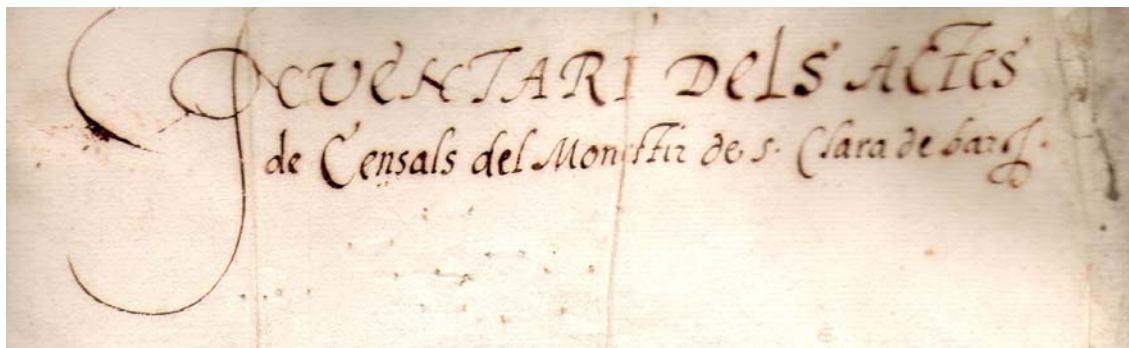 INVENTARI DELS ACTES
de Censals del Monestir de s. Clara de